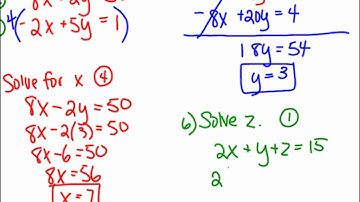 4(-2x + 5y = 1)
Solve for x ④
8x - 2y = 50
8x - 2(3) = 50
8x - 6 = 50
8x = 56
x = 7
-8x + 20y = 4
18y = 54
y = 3
6) Solve z. ①
2x + y + z = 15
2